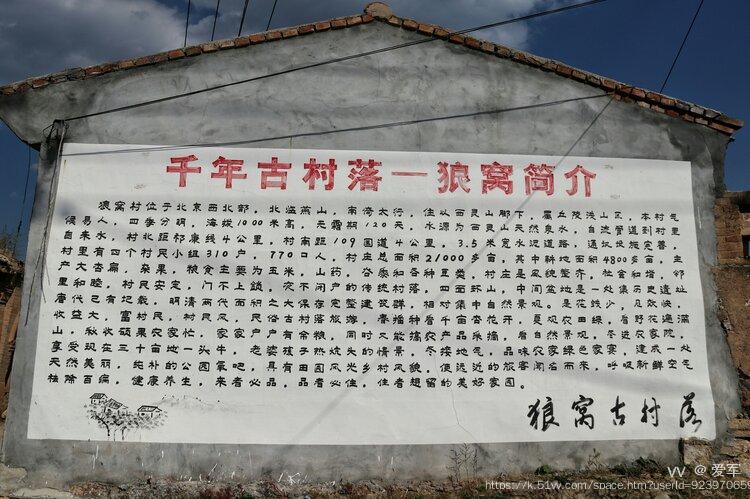 千年古村落—狼窝简介
狼窝村位于北京西北部，北临燕山，南傍太行，住以西灵山脚下，属丘陵浅山区，本村气
候易人，四季分明，海拔1000米高，无霜期120天，水源为西灵山天然泉水，自流管道到村
自来水，村北距祁康线4公里，村南距109国道4公里，3.5米宽水泥道路，通坝设施完善，
村里有四个村民小组310户，770口人，村庄总面积21000多亩，其中耕地面积4800多亩，主
产大杏扁，杂果，粮食主要为玉米，山药，杏黍和各种豆类，村庄是风绕整齐，社会和增，邻
里和睦，村民安定，门不上锁，夜不闭户的传统村落，四面环山，中间盆地是一处集历史遗址
唐代已有地载，明清两代面积之大保存完整的建筑群，相村集中自然景观。
收益大，富村民，村民风，民俗古村落旅游，春播种看千亩杏花开，夏观农田绿，看野花遍满
山，秋收硕果农家忙，家家户户有余粮，同时又能搞农产品采摘，看自然景观，冬进农家院，
享受现在三十亩地一头牛，老婆孩子热炕头的情景，冬接地气，品味农家绿色家宴，达成一处
天然美丽，纯朴的公园，具有田园风光，失乡村风貌，便远近的旅客闻名而来，呼吸新鲜空气
祛除百病，健康养生，氧吧，来者必品，品者必住，住者想留的美好家园。
狼窝古村落
@爱军
https://k.51vv.com/space.htm?userId=92397065